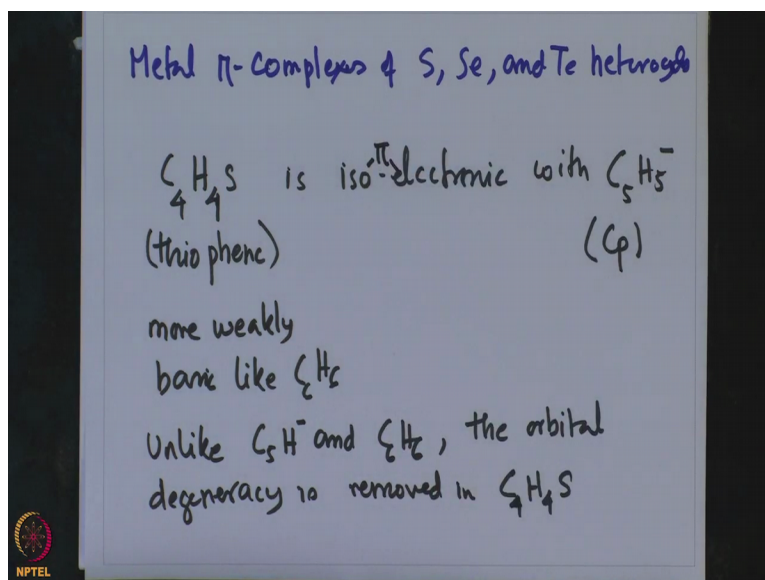 Metal π-Complexes of S, Se, and Te heterocycle
C₄H₄S is iso-π-electronic with C₅H₅⁻
(thiophene) (Cp)
more weakly
basic like C₆H₆
Unlike C₅H⁻ and C₆H₆, the orbital
degeneracy is removed in C₄H₄S
NPTEL